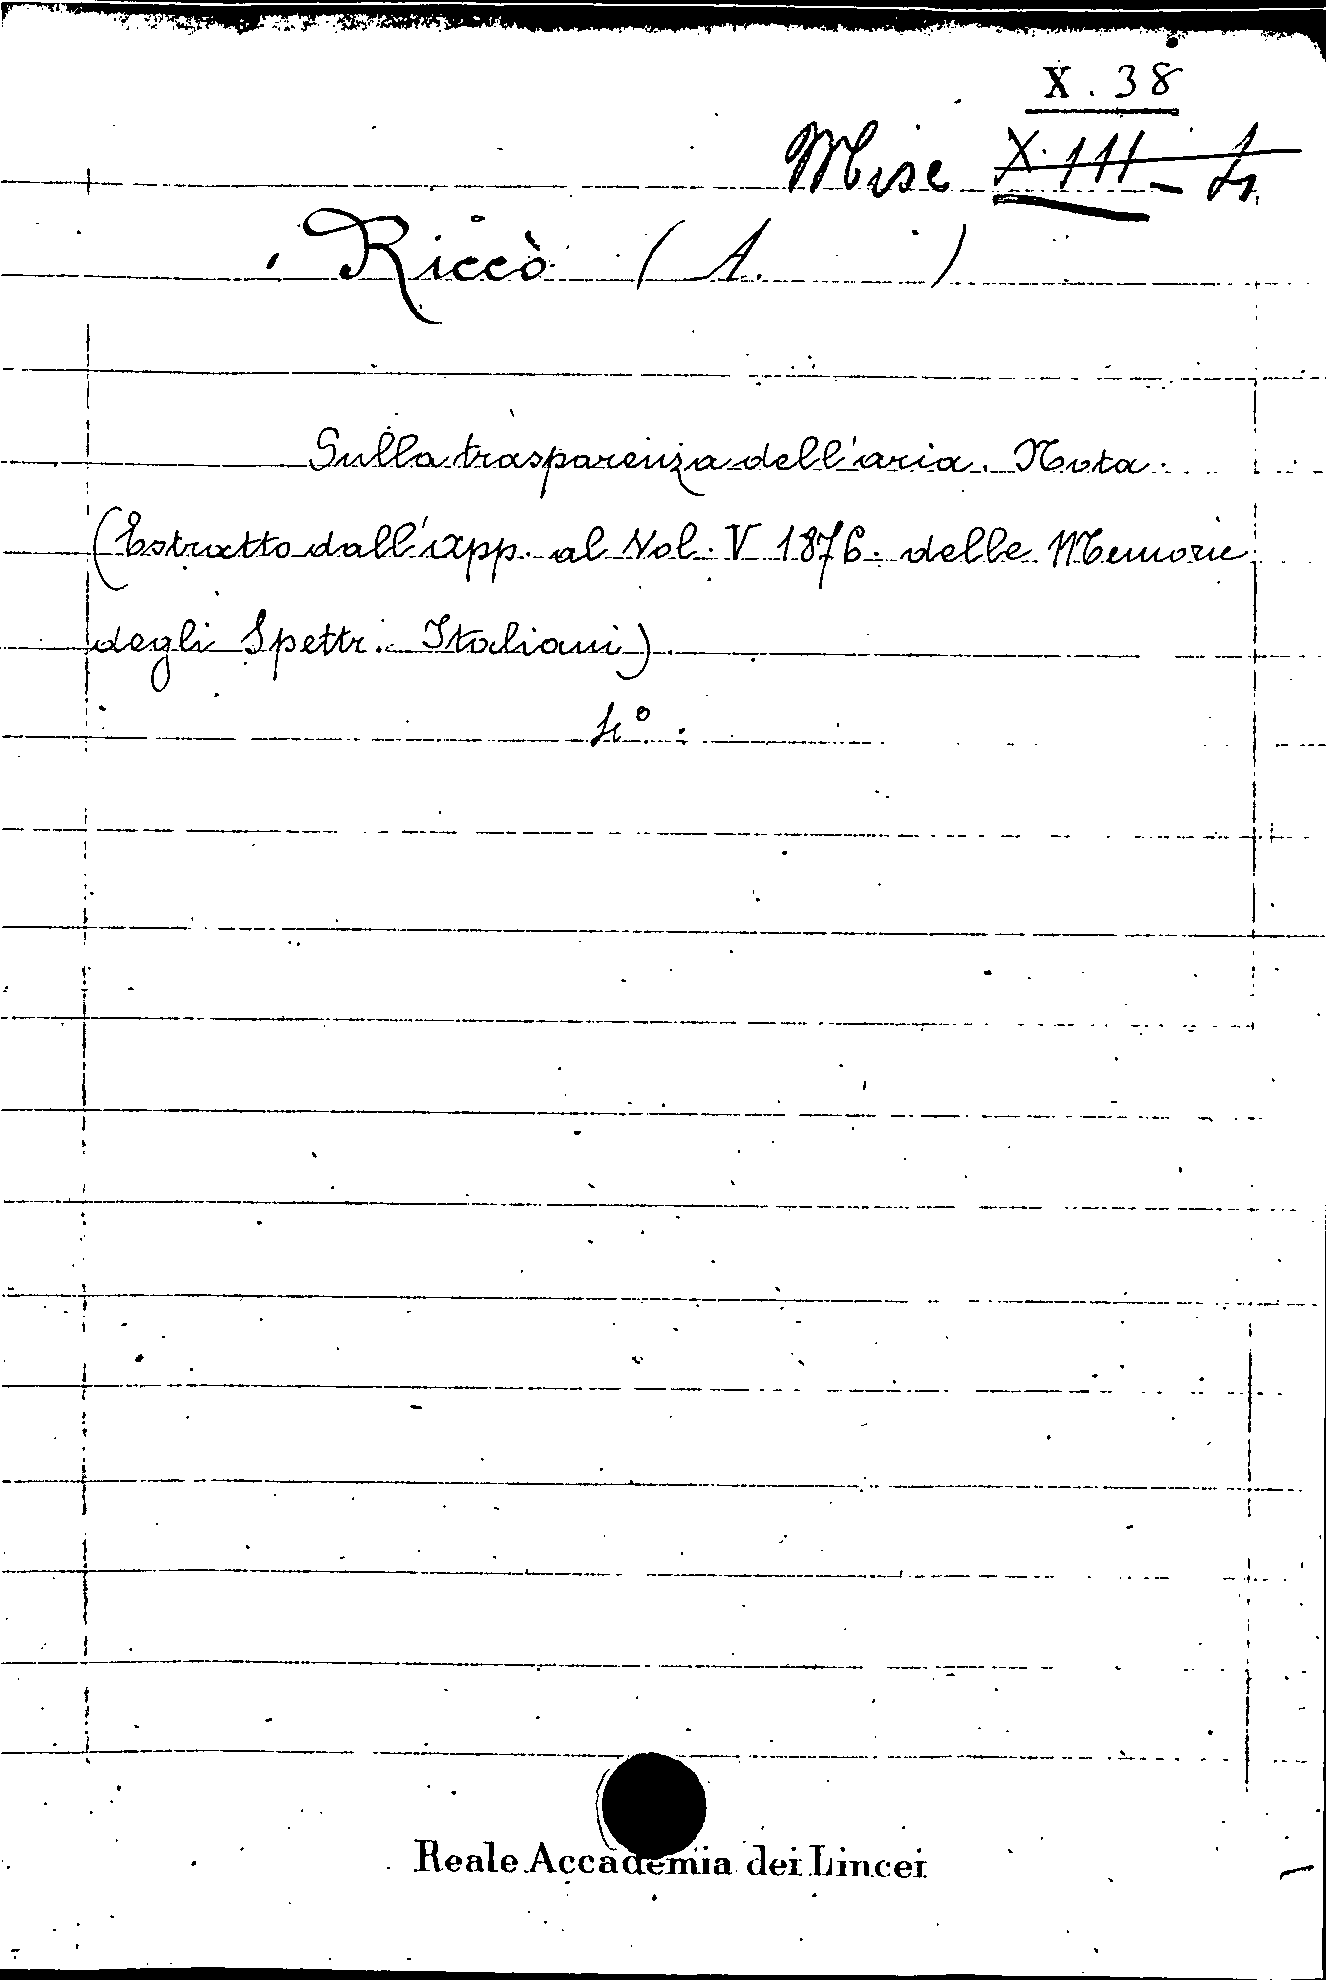 X. 38
Misc X. III - 4
Riccò (A. )
Sulla trasparenza dell'aria. Nota
(Estratto dall'App. al Vol. V 1876. delle Memorie
degli Spettr. Italiani).
4°.
Reale Accademia dei Lincei